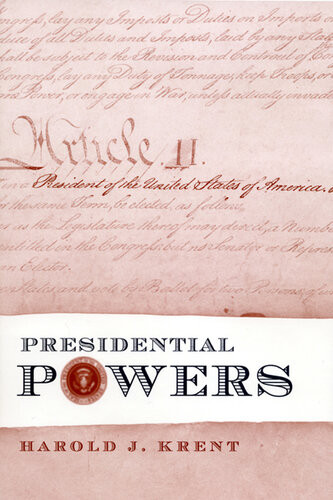 ongress, lay any Imposts or Duties on Imports o
duce of all Duties and Imposts, laid by any State
hall be subject to the Revision and Controul of Con
Congress, lay any Duty of Tonnage, keep Troops, or
Power, or engage in War, unless actually invade
Article II.
in a President of the United States of America.
the same Term, be elected, as follows
as the Legislature thereof may direct, a Number
entitled in the Congress: but no Senator or Represe
an Elector.
States, and vote by Ballot for two Persons, of
PRESIDENTIAL
POWERS
HAROLD J. KRENT